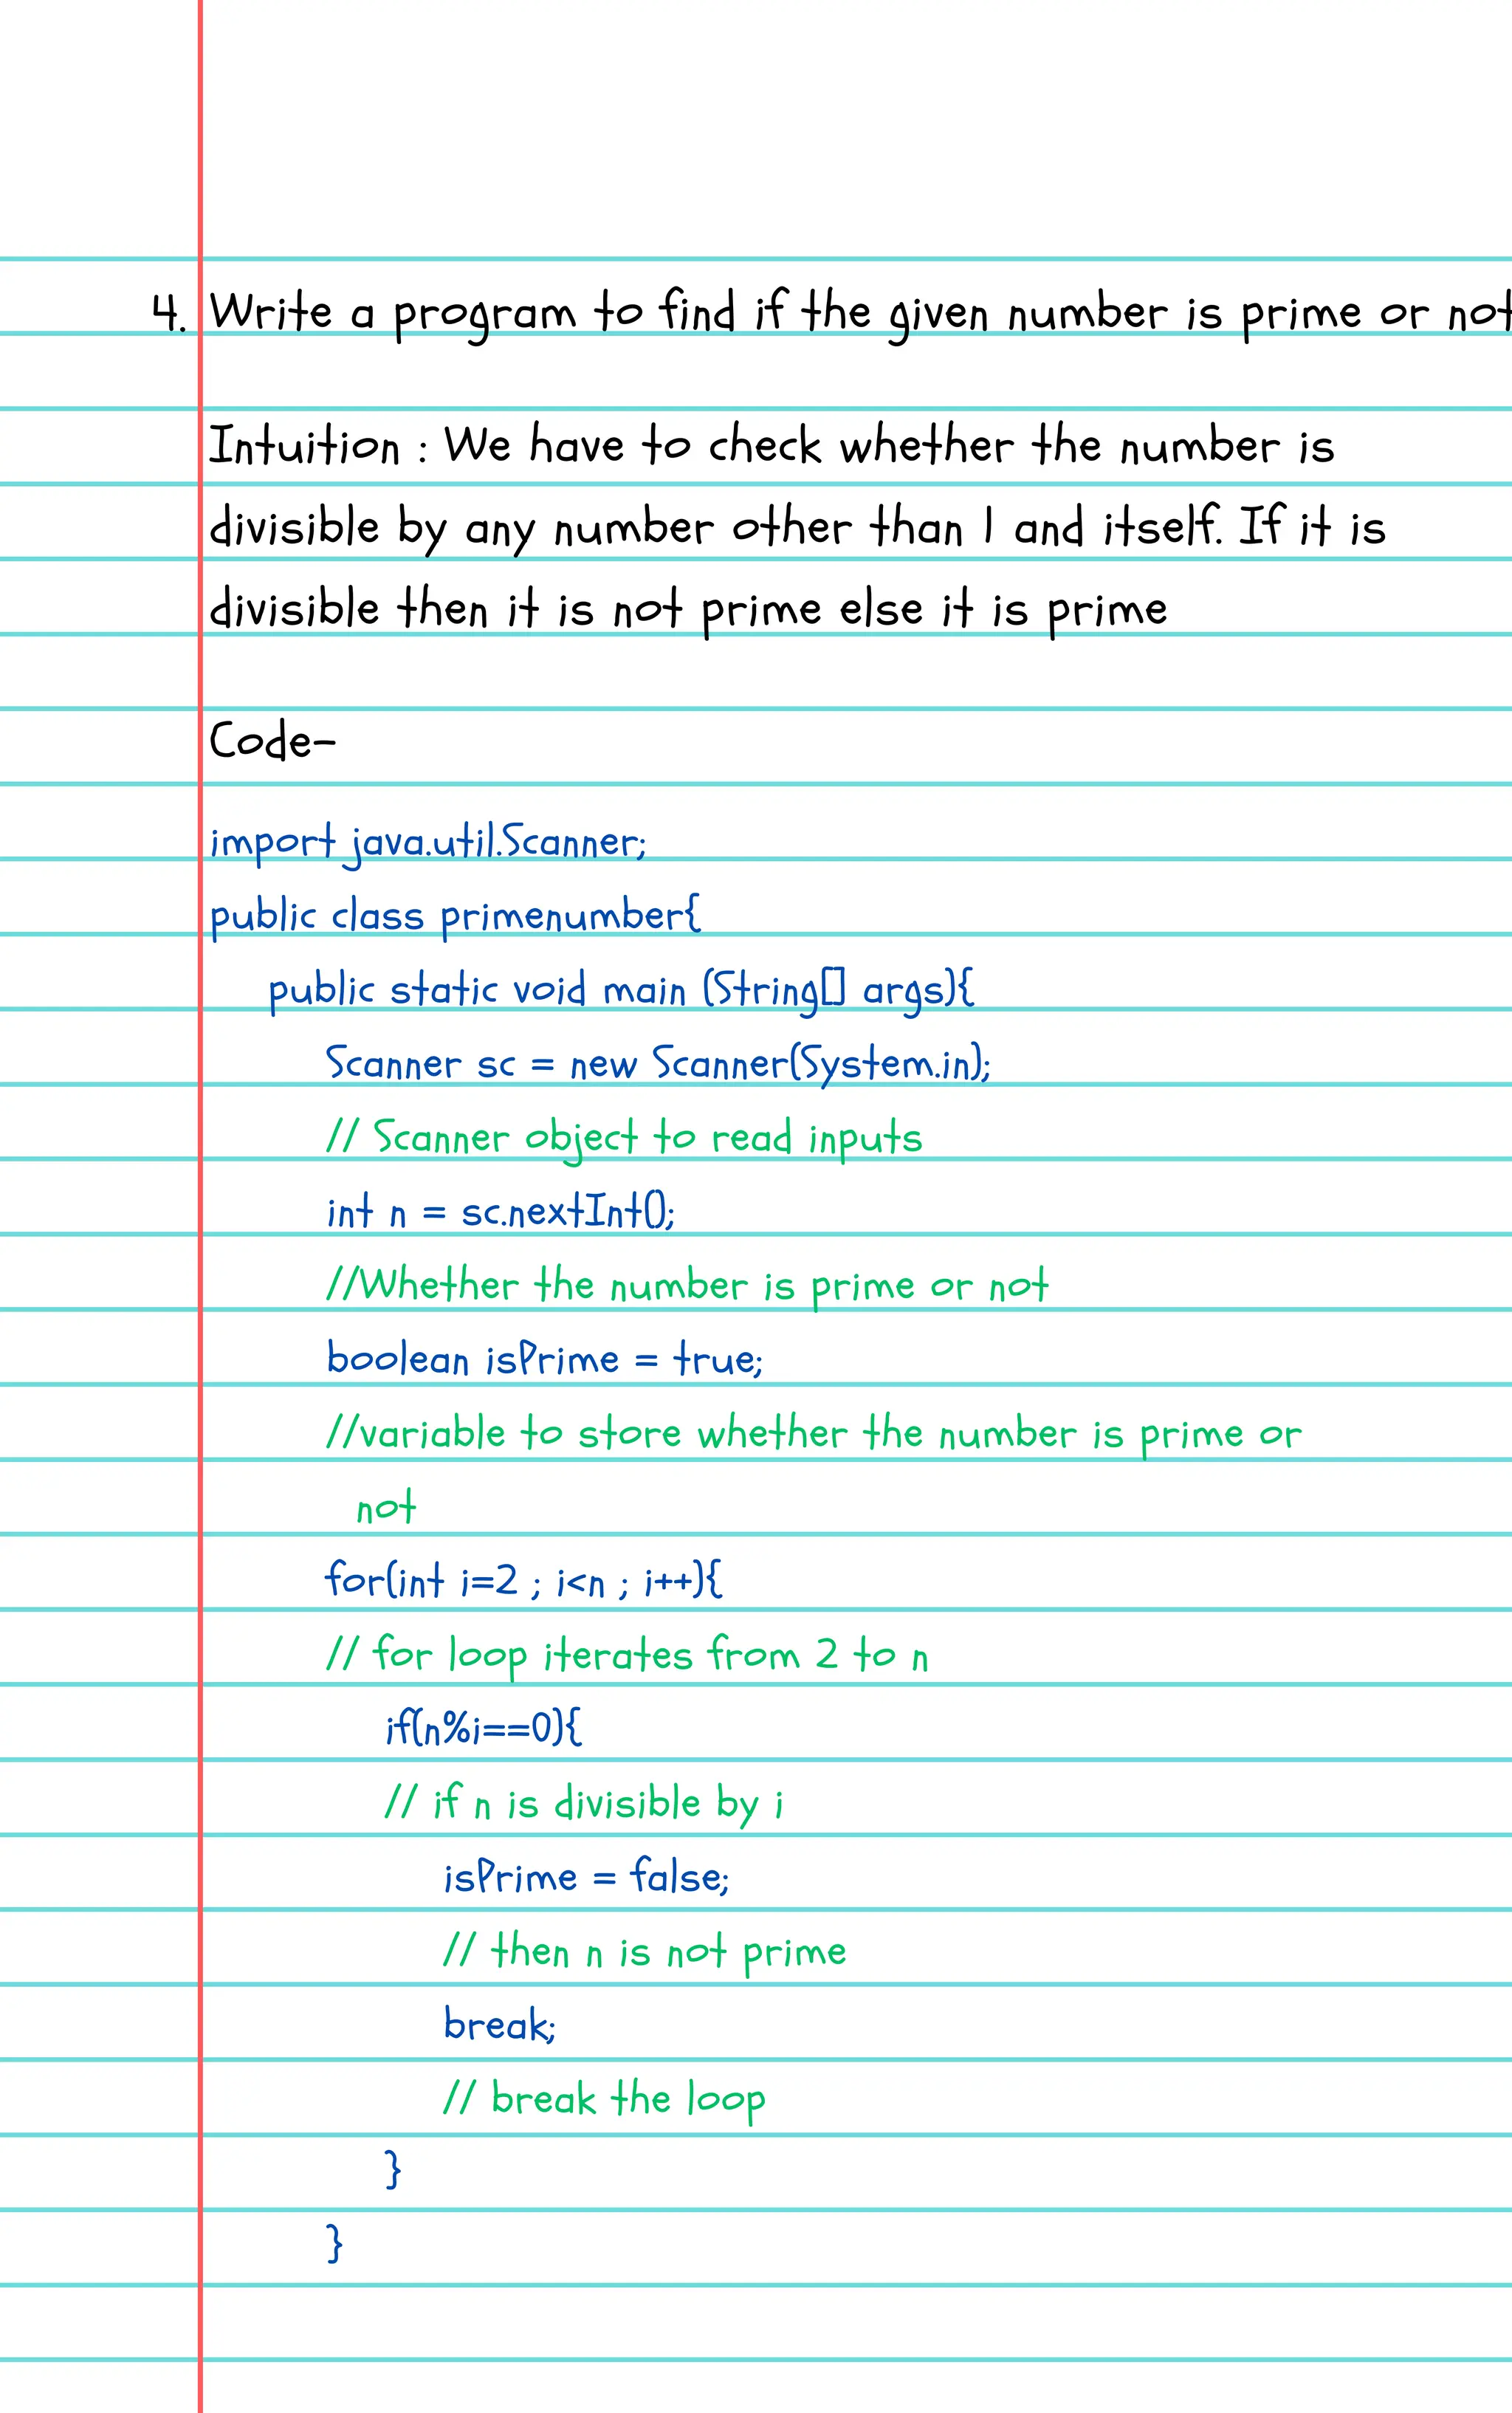 4. Write a program to find if the given number is prime or not
Intuition : We have to check whether the number is
divisible by any number other than 1 and itself. If it is
divisible then it is not prime else it is prime
Code-
import java.util.Scanner;
public class primenumber{
public static void main (String[] args){
Scanner sc = new Scanner(System.in);
// Scanner object to read inputs
int n = sc.nextInt();
//Whether the number is prime or not
boolean isPrime = true;
//variable to store whether the number is prime or
not
for(int i=2 ; i<n ; i++){
// for loop iterates from 2 to n
if(n%i==0){
// if n is divisible by i
isPrime = false;
// then n is not prime
break;
// break the loop
}
}